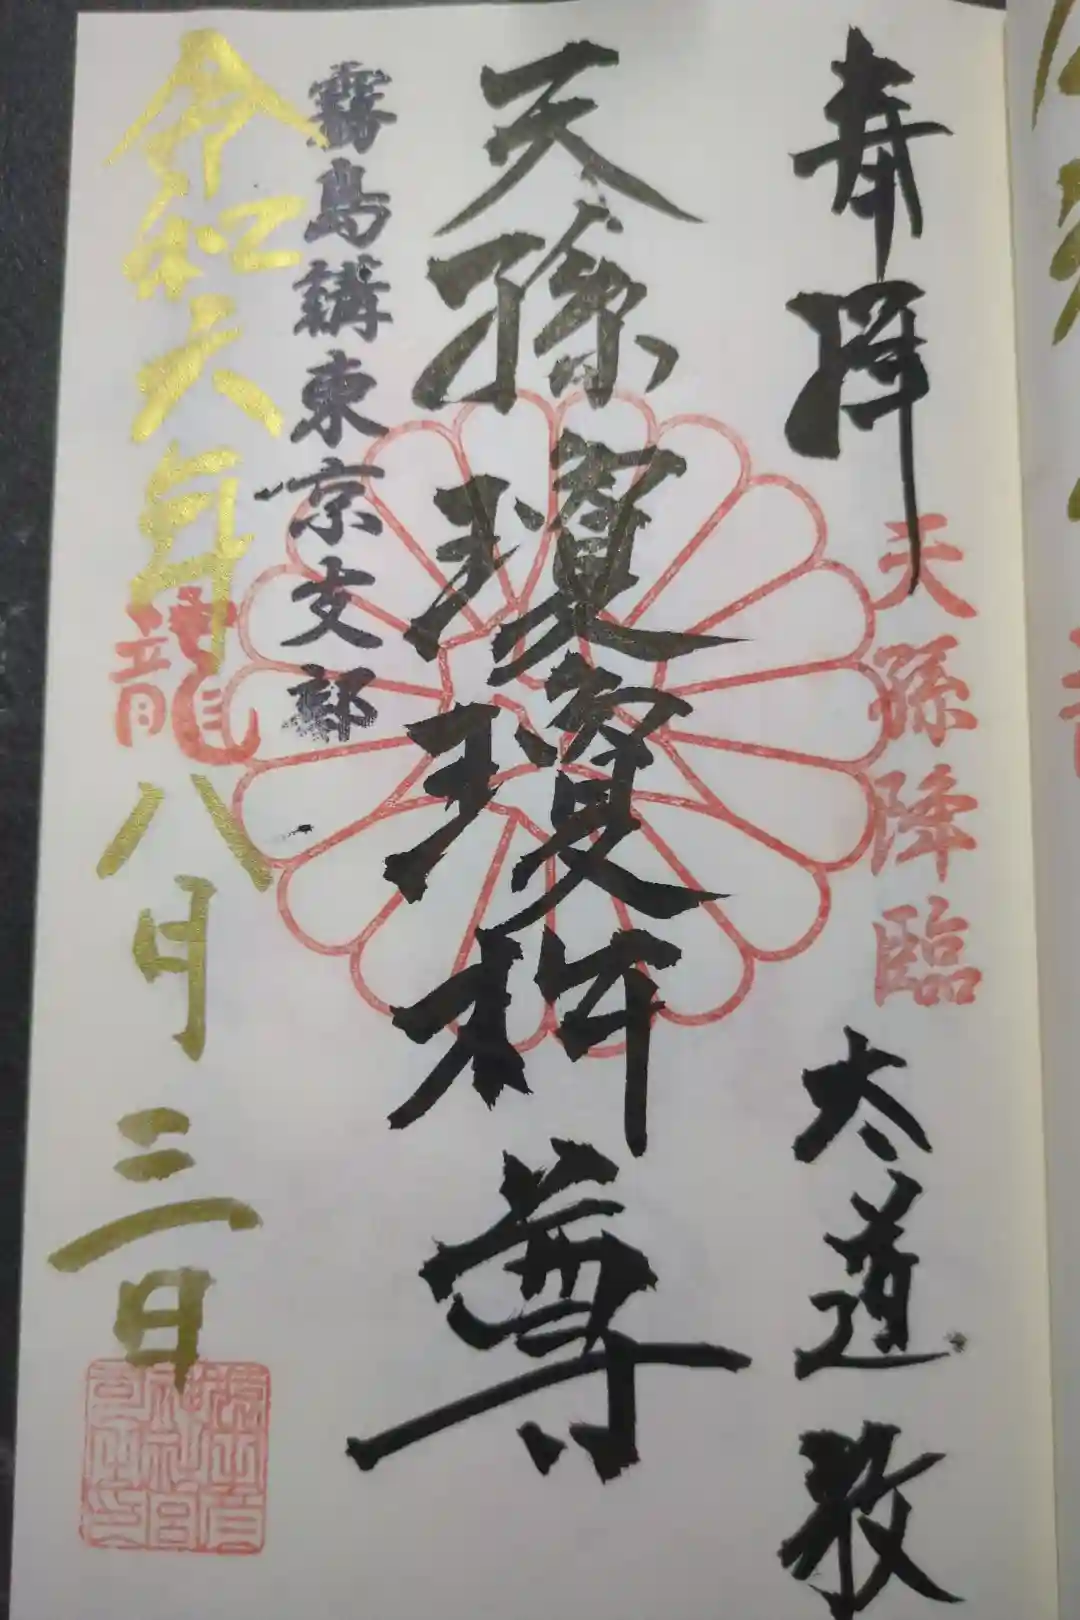 奉拝
天孫降臨
太道教
天孫瓊瓊杵尊
霧島講東京支部
令和六年八月三日
龍